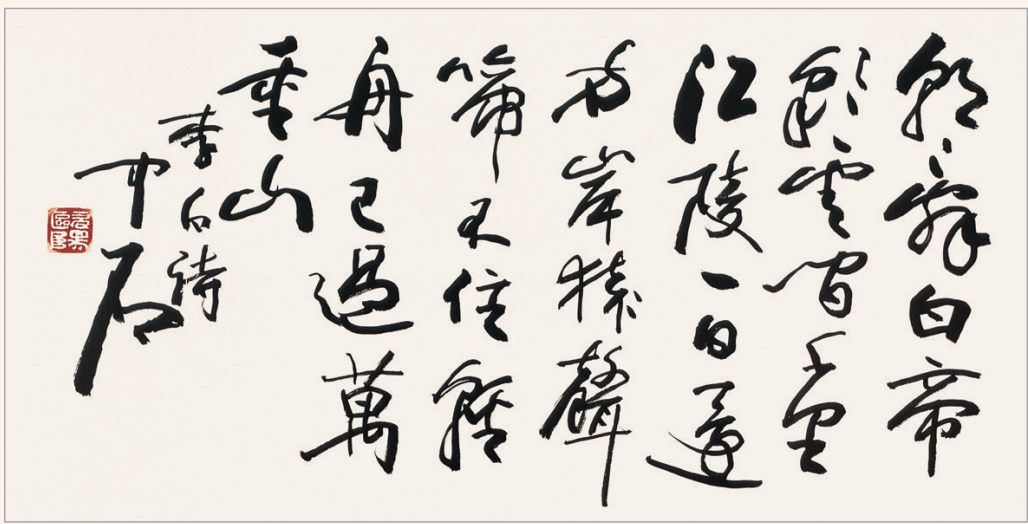 朝辭白帝
彩雲間千里
江陵一日還
兩岸猿聲
啼不住輕
舟已過萬
重山
李白詩
中石